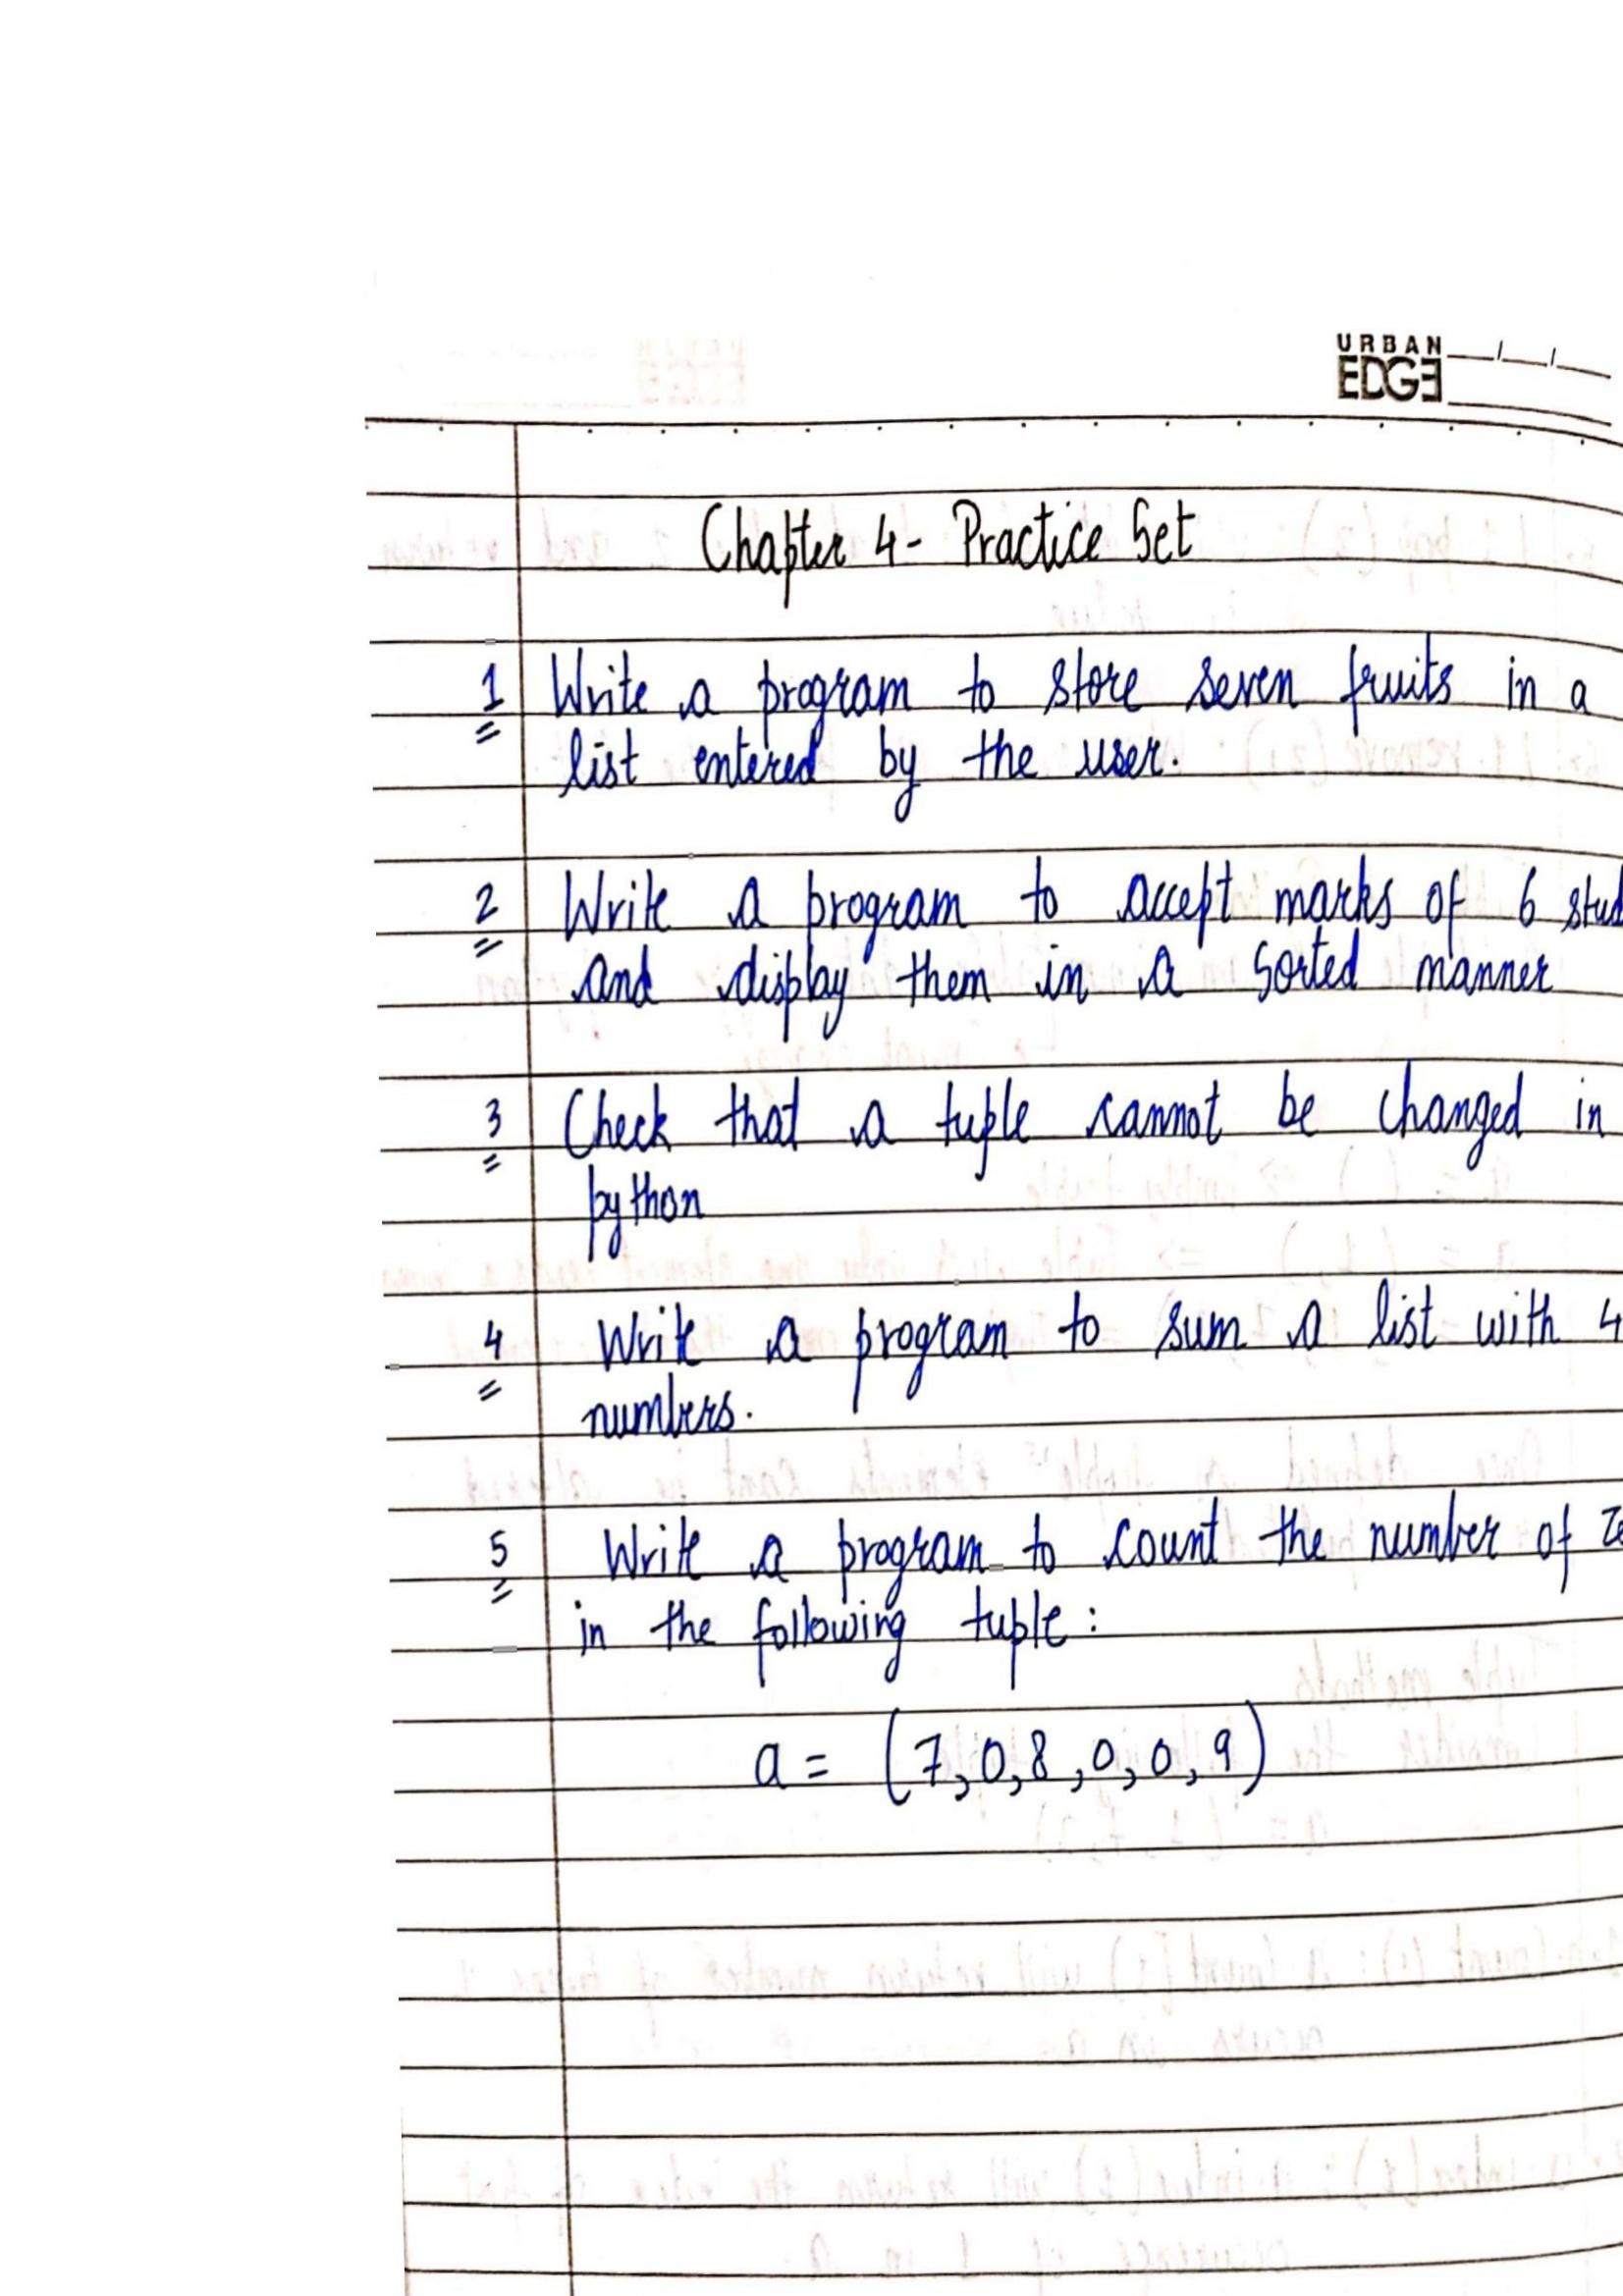 URBAN
EDGE
Chapter 4- Practice Set
1 Write a program to store seven fruits in a
list entered by the user.
2 Write a program to accept marks of 6 stud
and display them in a sorted manner
3 Check that a tuple cannot be changed in
python
4 Write a program to sum a list with 4
numbers.
5 Write a program to count the number of
in the following tuple:
a = (7, 0, 8, 0, 0, 9)